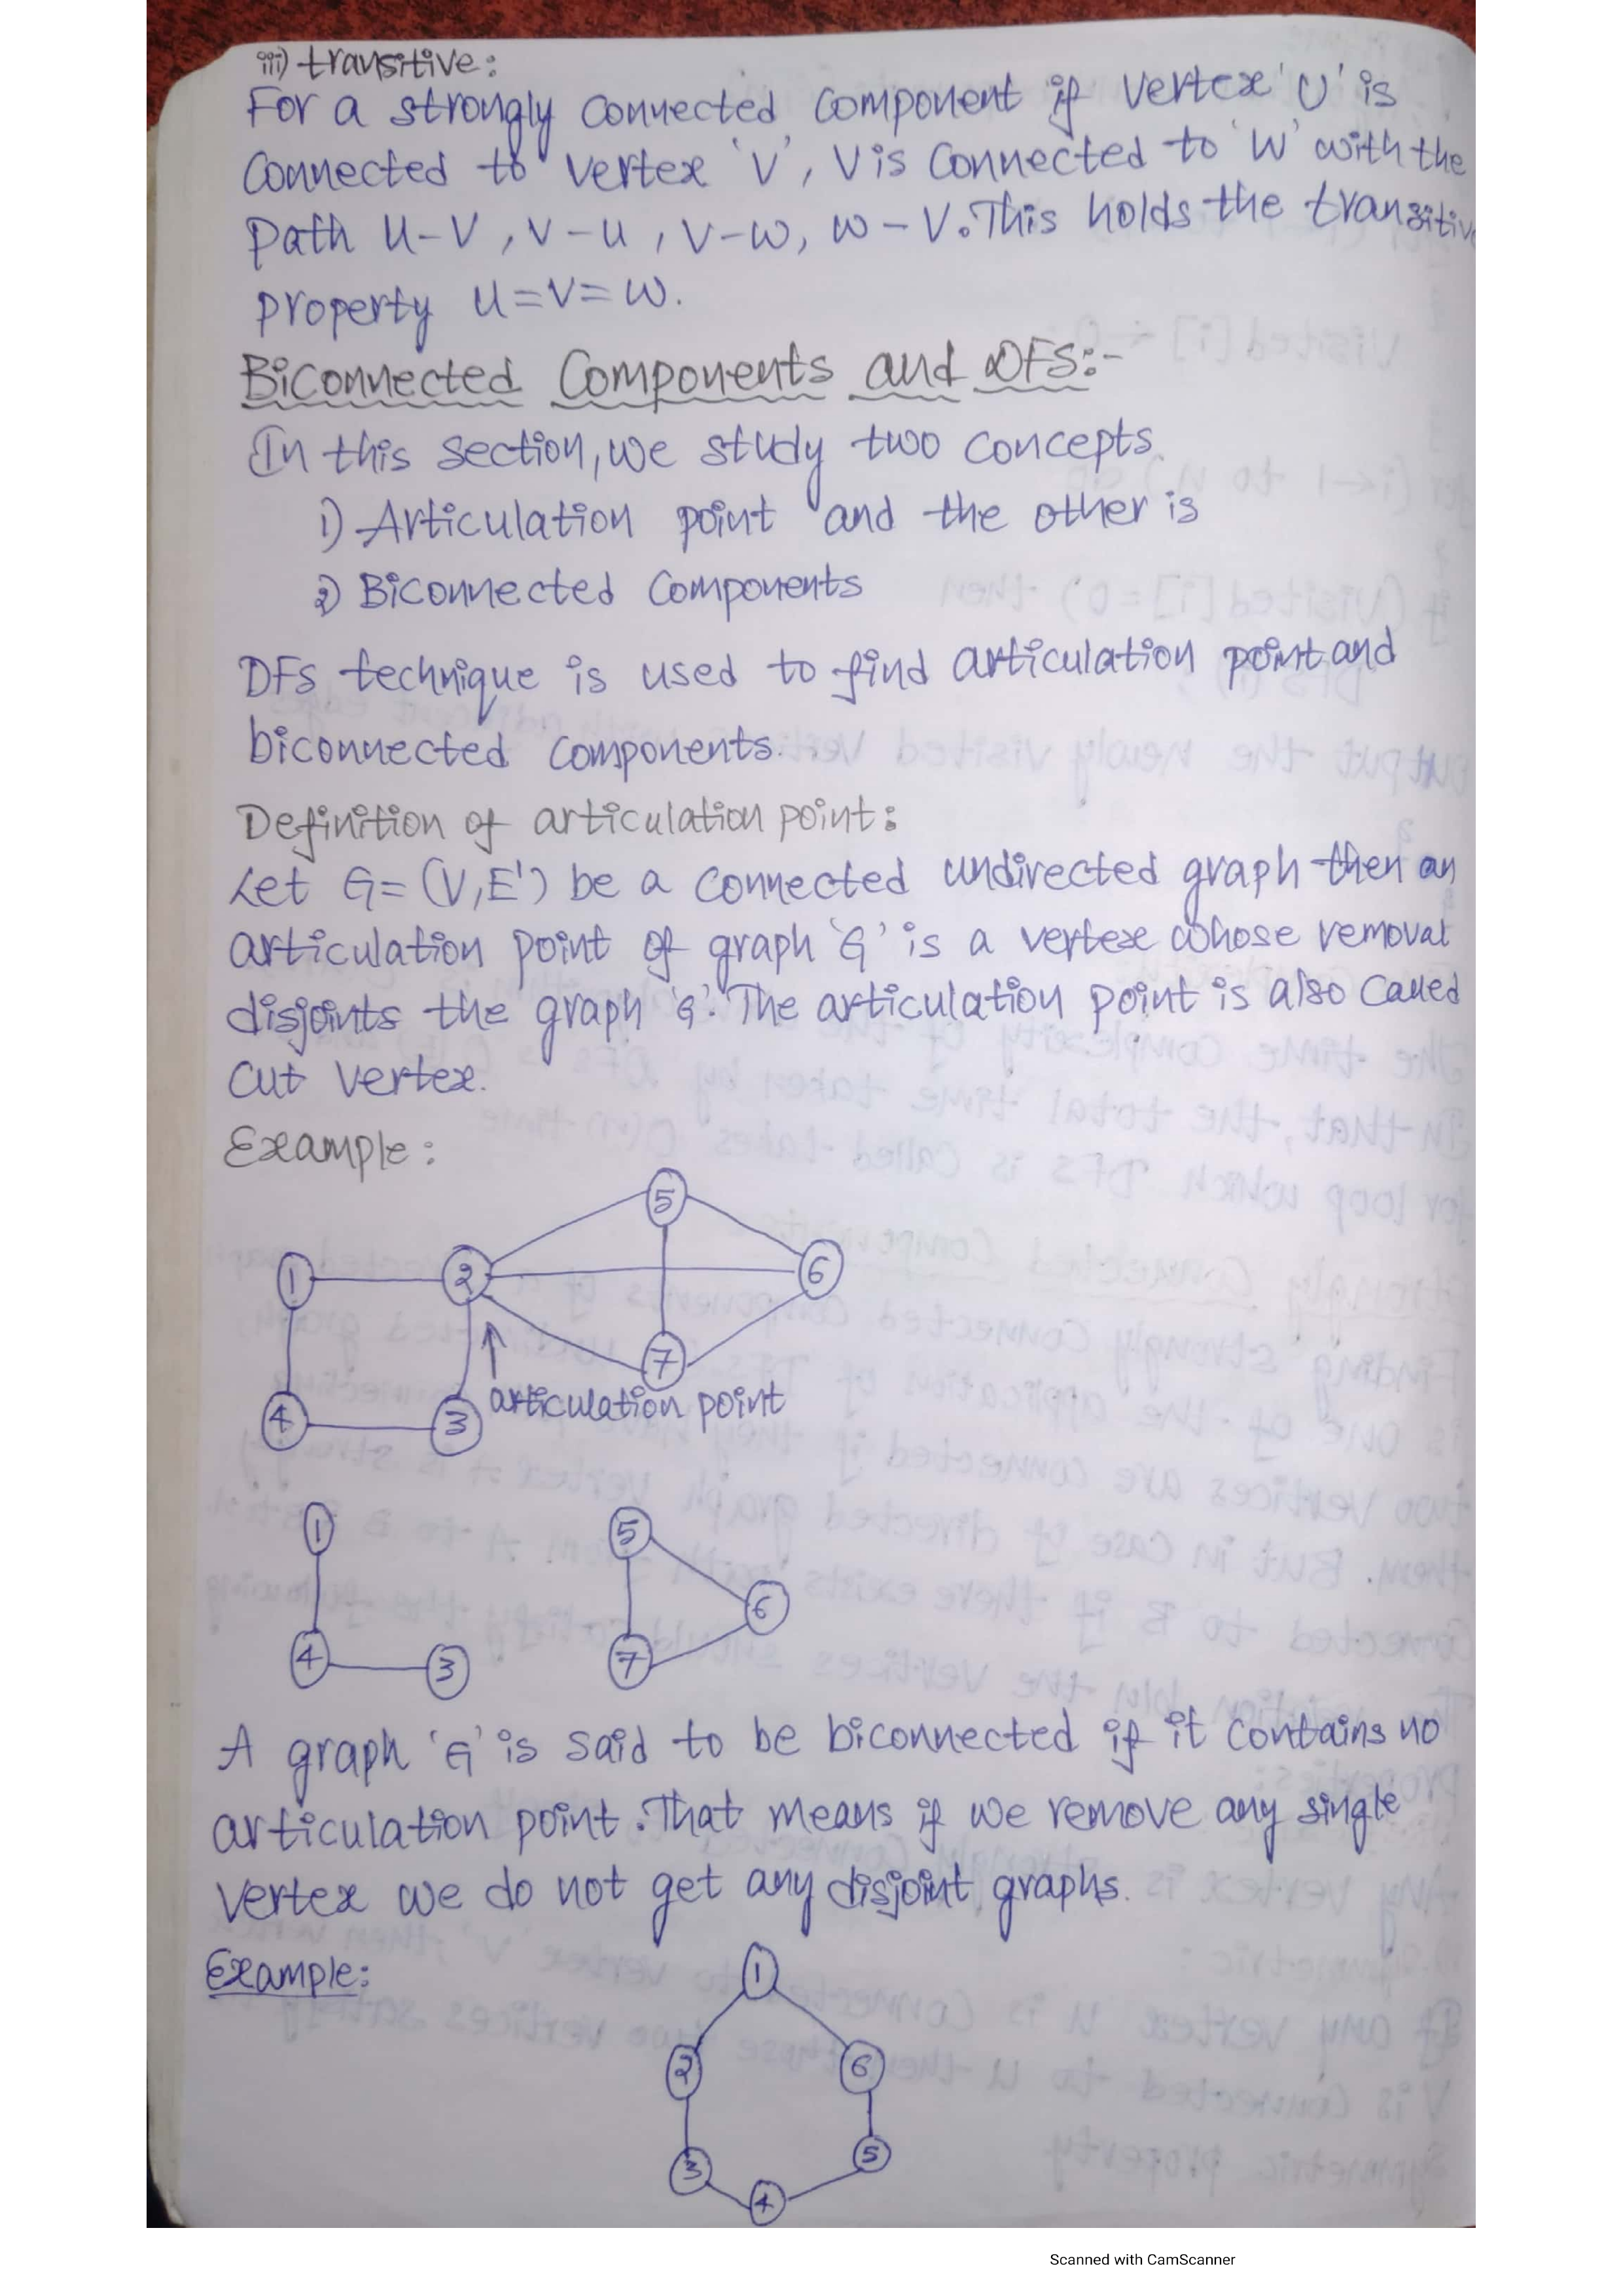 iii) transitive:
For a strongly connected component if vertex 'U' is
connected to vertex 'V', V is connected to 'W' with the
path U-V, V-U, V-W, W-V. This holds the transitive
property U=V=W.
Biconnected Components and DFS:-
In this section, we study two concepts.
1) Articulation point and the other is
2) Biconnected Components
DFS technique is used to find articulation point and
biconnected components.
Definition of articulation point:
Let G=(V,E') be a connected undirected graph then an
articulation point of graph 'G' is a vertex whose removal
disjoints the graph 'G'. The articulation point is also called
cut vertex.
Example:
5
1 2 6
7
articulation point
4 3
1 5
6
4 3 7
A graph 'G' is said to be biconnected if it contains no
articulation point. That means if we remove any single
vertex we do not get any disjoint graphs.
Example:
1
2 6
3 5
4
Scanned with CamScanner